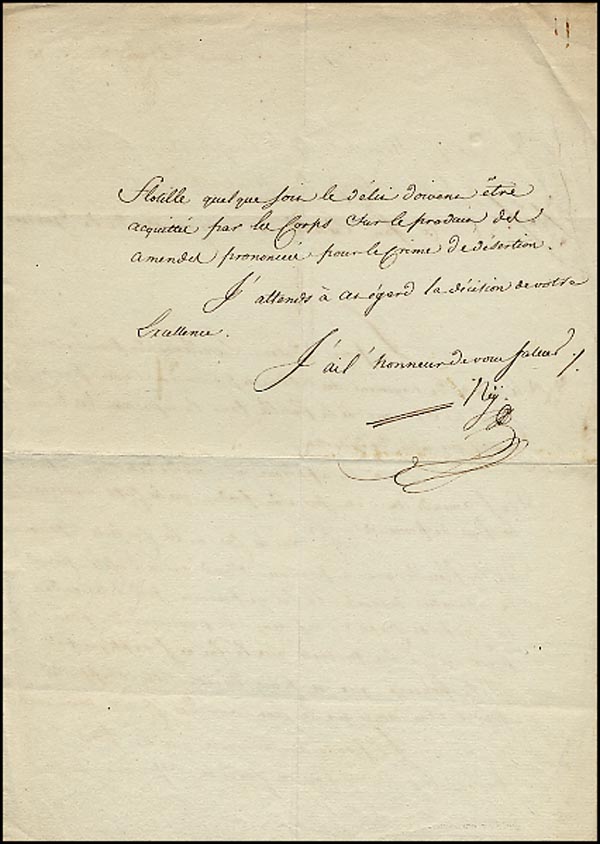 flotille quelque soit le délit doivent être
acquittés par les Corps sur le produit des
amendes prononcées pour le Crime de désertion.
J'attends à cet égard la décision de votre
Excellence.
J'ai l'honneur de vous saluer /.
Ney.